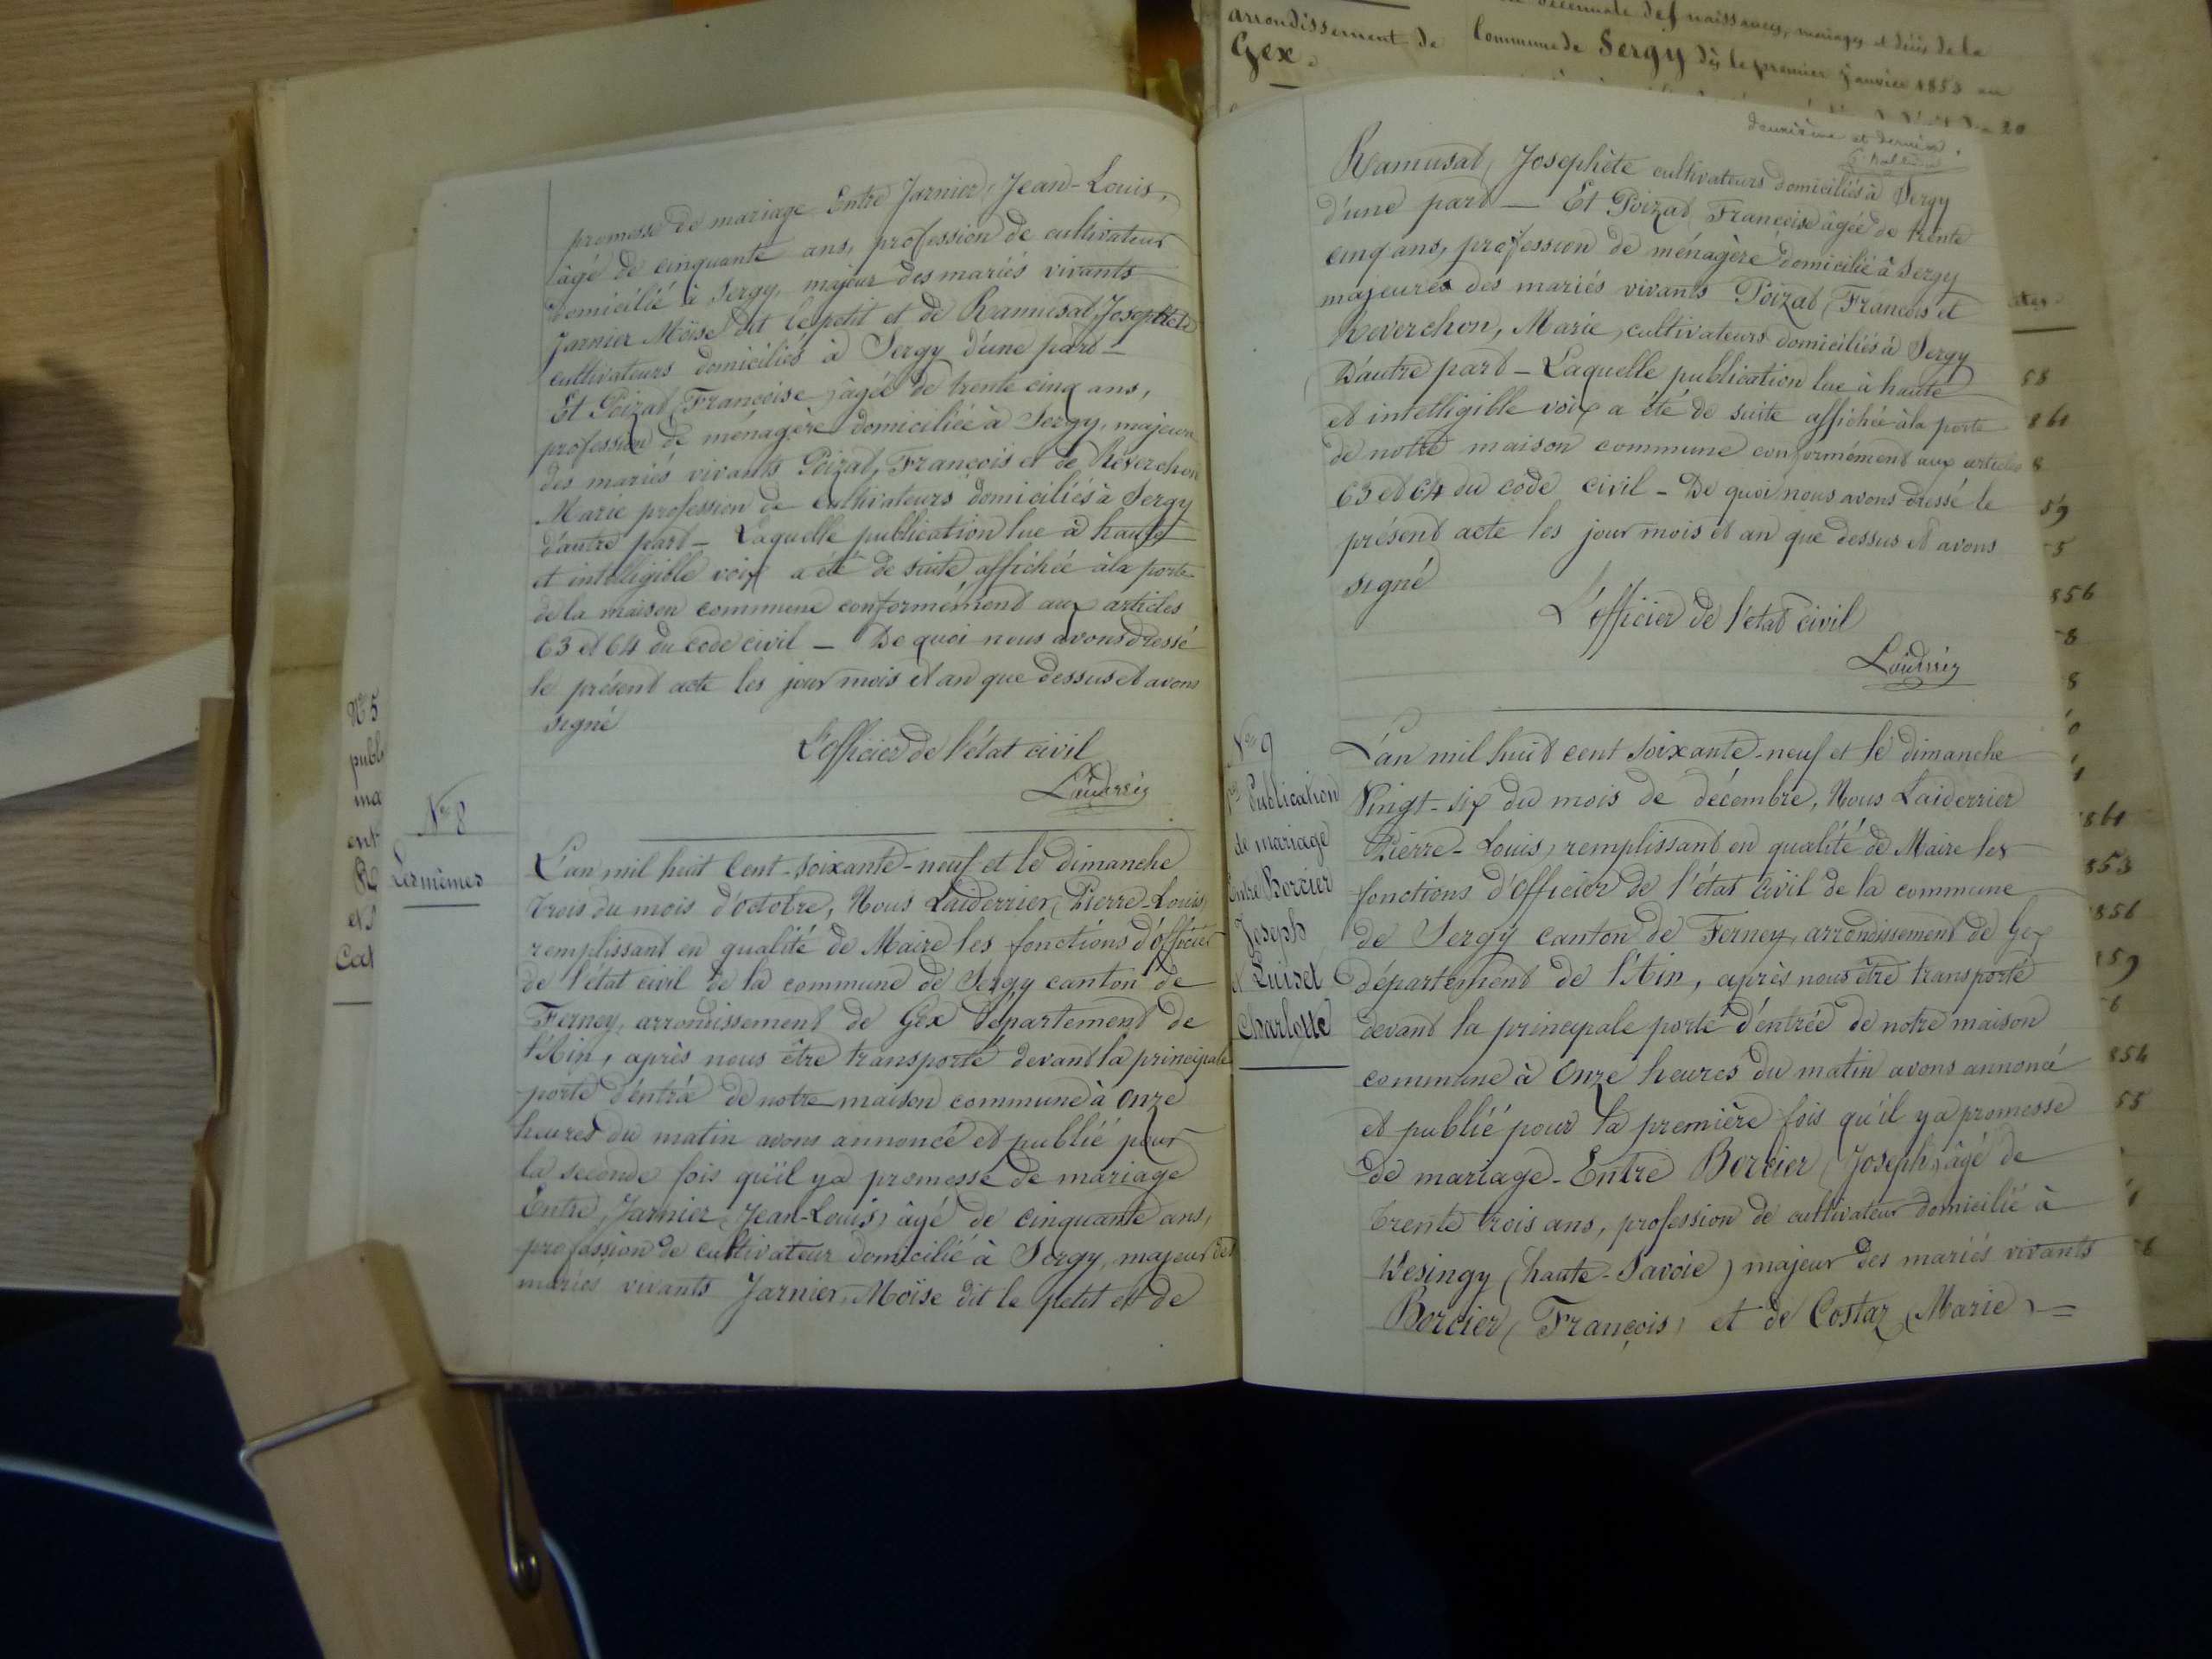 promesse de mariage Entre Jarnier, Jean-Louis,
âgé de cinquante ans, profession de cultivateur
domicilié à Sergy, majeur des mariés vivants
Jarnier Moïse dit le petit et de Ramusat, Josephète
cultivateurs domiciliés à Sergy d'une part —
Et Poizat (Françoise) âgée de trente cinq ans,
profession de ménagère domiciliée à Sergy, majeure
des mariés vivants Poizat, François et de Reverchon
Marie profession de cultivateurs domiciliés à Sergy
d'autre part — Laquelle publication lue à haute
et intelligible voix a été de suite affichée à la porte
de la maison commune conformément aux articles
63 et 64 du code civil — De quoi nous avons dressé
le présent acte les jour mois et an que dessus et avons
signé
L'officier de l'état civil
N° 8
Les mêmes
L'an mil huit Cent-soixante-neuf et le dimanche
trois du mois d'octobre, Nous Laiderrier, Pierre-Louis,
remplissant en qualité de Maire les fonctions d'officier
de l'état civil de la commune de Sergy canton de
Ferney, arrondissement de Gex département de
l'Ain, après nous être transporté devant la principale
porte d'entrée de notre maison commune à Onze
heures du matin avons annoncé et publié pour
la seconde fois qu'il y a promesse de mariage
Entre, Jarnier (Jean-Louis) âgé de cinquante ans,
profession de cultivateur domicilié à Sergy, majeur des
mariés vivants Jarnier, Moïse dit le petit et de
N° 5
publ
ma
ent
R
et
Cat
arrondissement de
Gex.
décennale des naissances, mariages et décès de la
Commune de Sergy dès le premier janvier 1853 au
deuxième et dernier.
Ramusat, Josephète cultivateurs domiciliés à Sergy
d'une part — Et Poizat, Françoise âgée de trente
cinq ans, profession de ménagère domicilié à Sergy
majeures des mariés vivants Poizat (François et
Reverchon, Marie, cultivateurs domiciliés à Sergy
D'autre part — Laquelle publication lue à haute
et intelligible voix a été de suite affichée à la porte
de notre maison commune conformément aux articles
63 et 64 du code civil — De quoi nous avons dressé le
présent acte les jour mois et an que dessus et avons
signé
L'officier de l'état civil
N° 9
1re Publication
de mariage
Entre Borcier
Joseph
et Luiset
Charlotte
L'an mil huit cent soixante-neuf et le dimanche
Vingt-six du mois de décembre, Nous Laiderrier
Pierre-Louis, remplissant en qualité de Maire les
fonctions d'Officier de l'état civil de la commune
de Sergy canton de Ferney, arrondissement de Gex
département de l'Ain, après nous être transporté
devant la principale porte d'entrée de notre maison
commune à Onze heures du matin avons annoncé
et publié pour la première fois qu'il y a promesse
de mariage - Entre Borcier (Joseph) âgé de
trente trois ans, profession de cultivateur domicilié à
Vesingy (haute-Savoie) majeur des mariés vivants
Borcier (François) et de Costaz (Marie) =
58
861
8
59
5
856
8
8
861
853
856
859
6
854
55